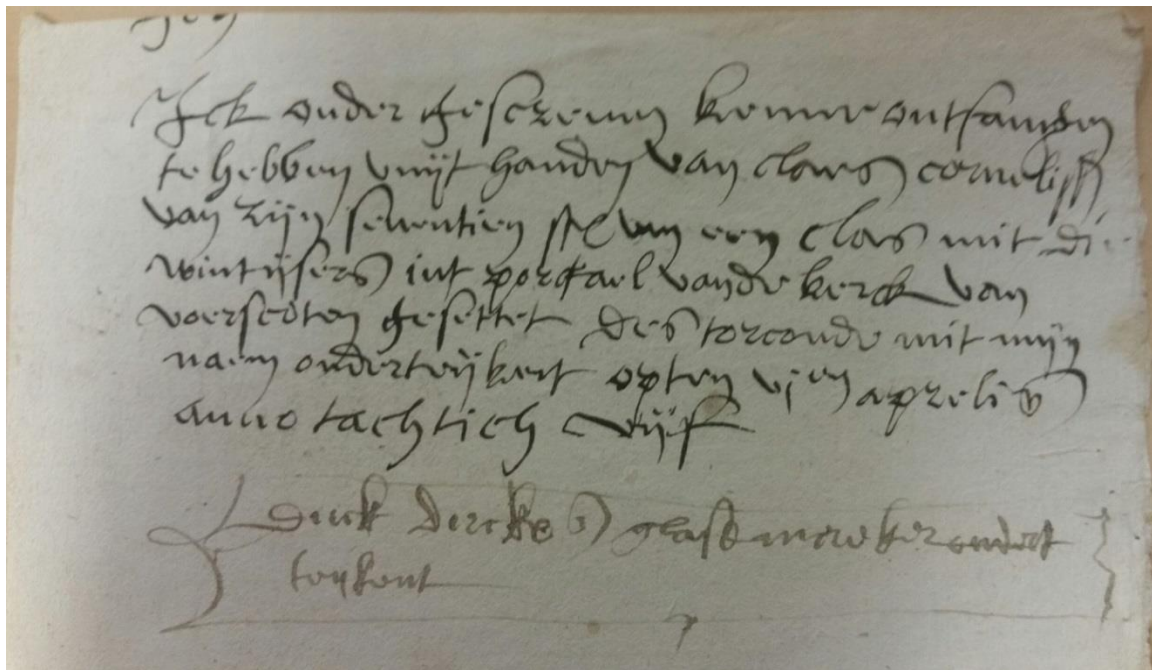 Ick onder gescreven kenne ontfangen
te hebben vuijt handen van claes cornelissz
van zijn seuentien van een glas mit die
wintijsers int portael vande kerck van
voerscoten gesettet des torconde mit mijn
naem onderteijkent opten vjen aprelis
anno tachtich vijf
Dirck dircksz glasemaeker ondert
teijkent